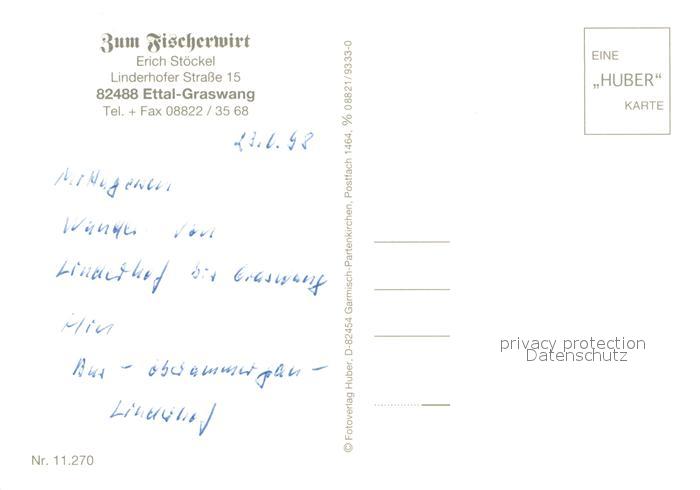 Zum Fischerwirt
Erich Stöckel
Linderhofer Straße 15
82488 Ettal-Graswang
Tel. + Fax 08822 / 35 68
23.6.98
Mittagessen
Wander. von
Linderhof bis Graswang
Hin
Bus - Oberammergau -
Linderhof
Nr. 11.270
© Fotoverlag Huber, D-82454 Garmisch-Partenkirchen, Postfach 1464, ℅ 08821/9333-0
EINE
„HUBER“
KARTE
privacy protection
Datenschutz